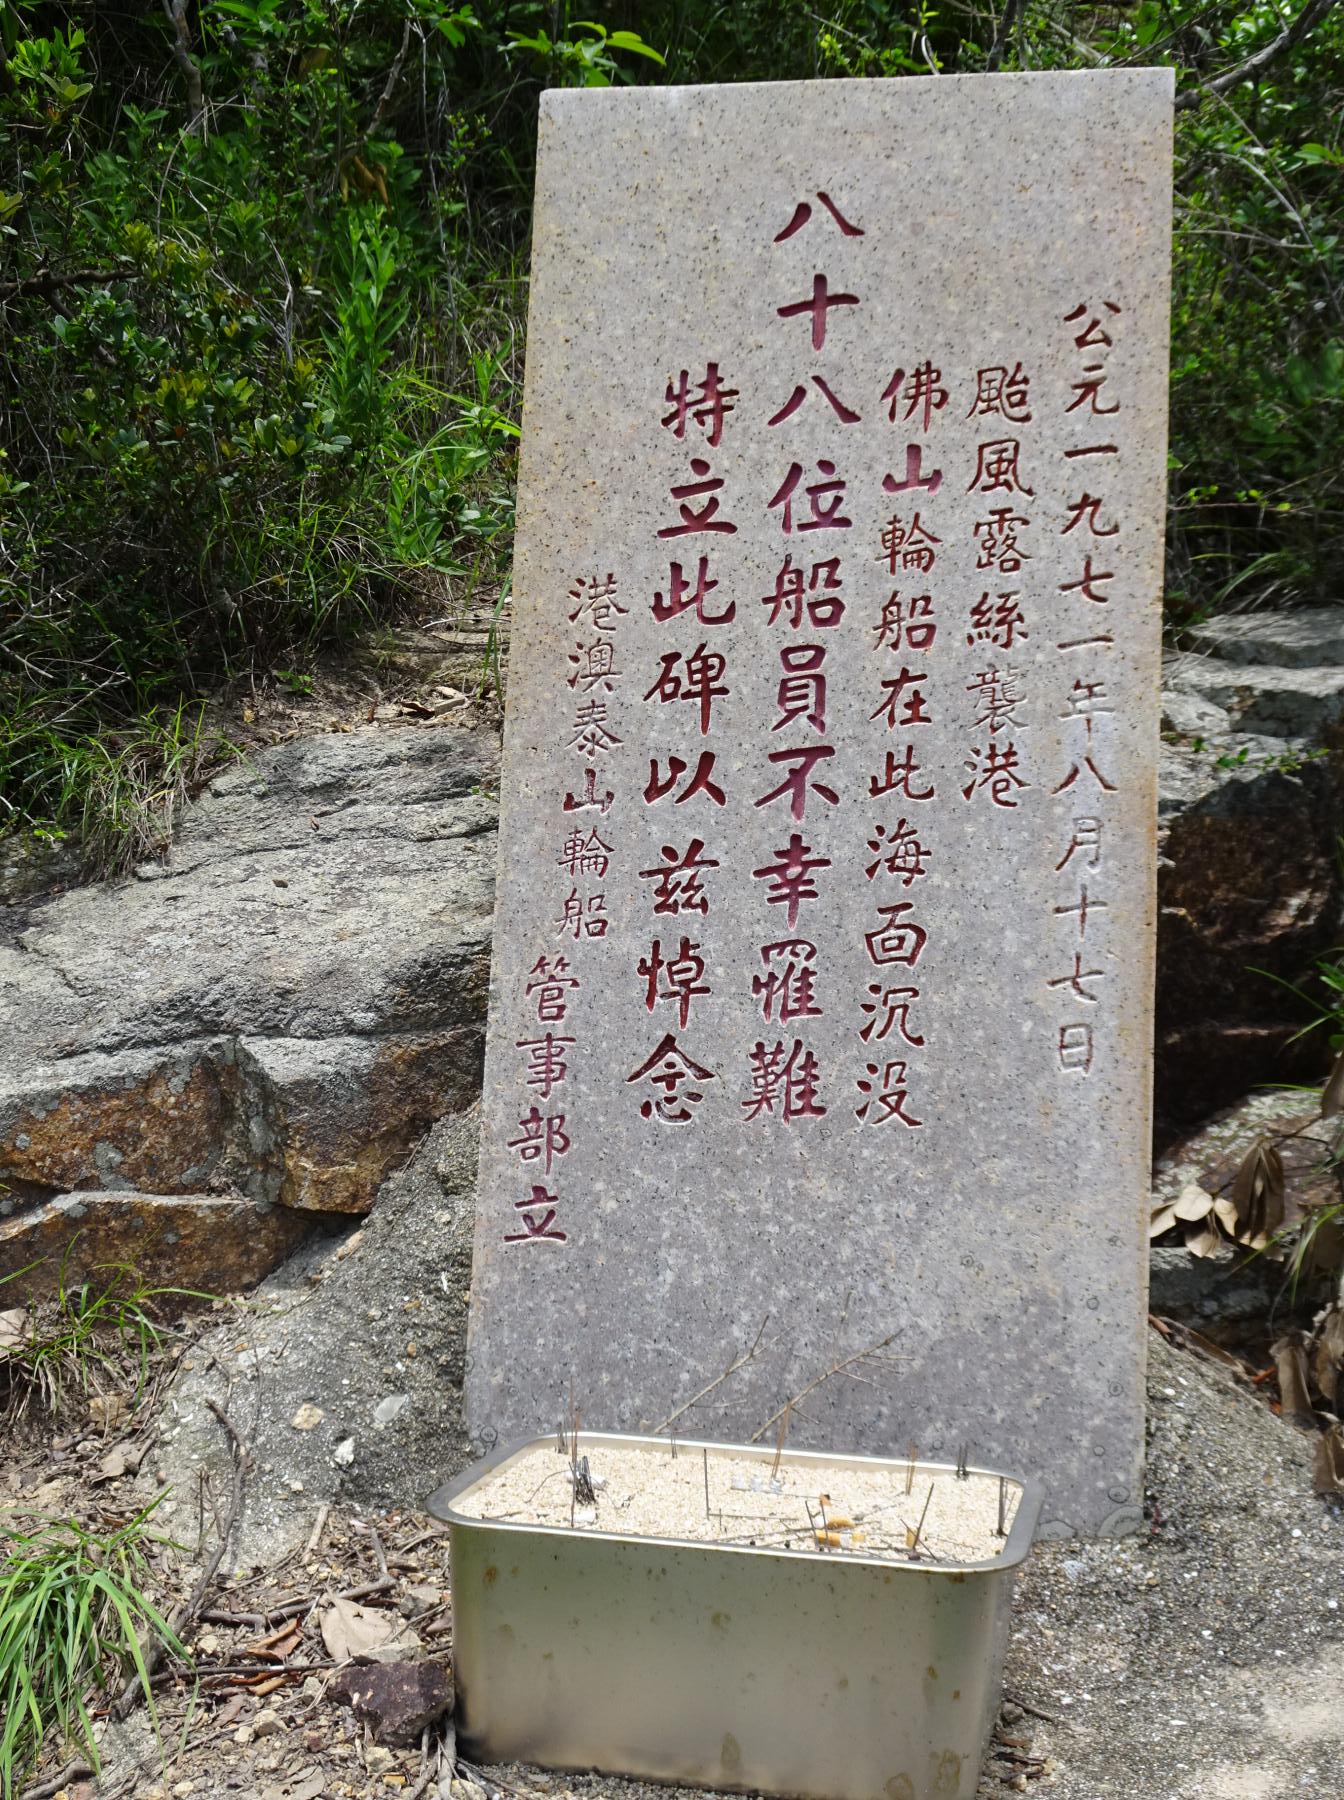 公元一九七一年八月十七日
颱風露絲襲港
佛山輪船在此海面沉没
八十八位船員不幸罹難
特立此碑以兹悼念
港澳泰山輪船
管事部立